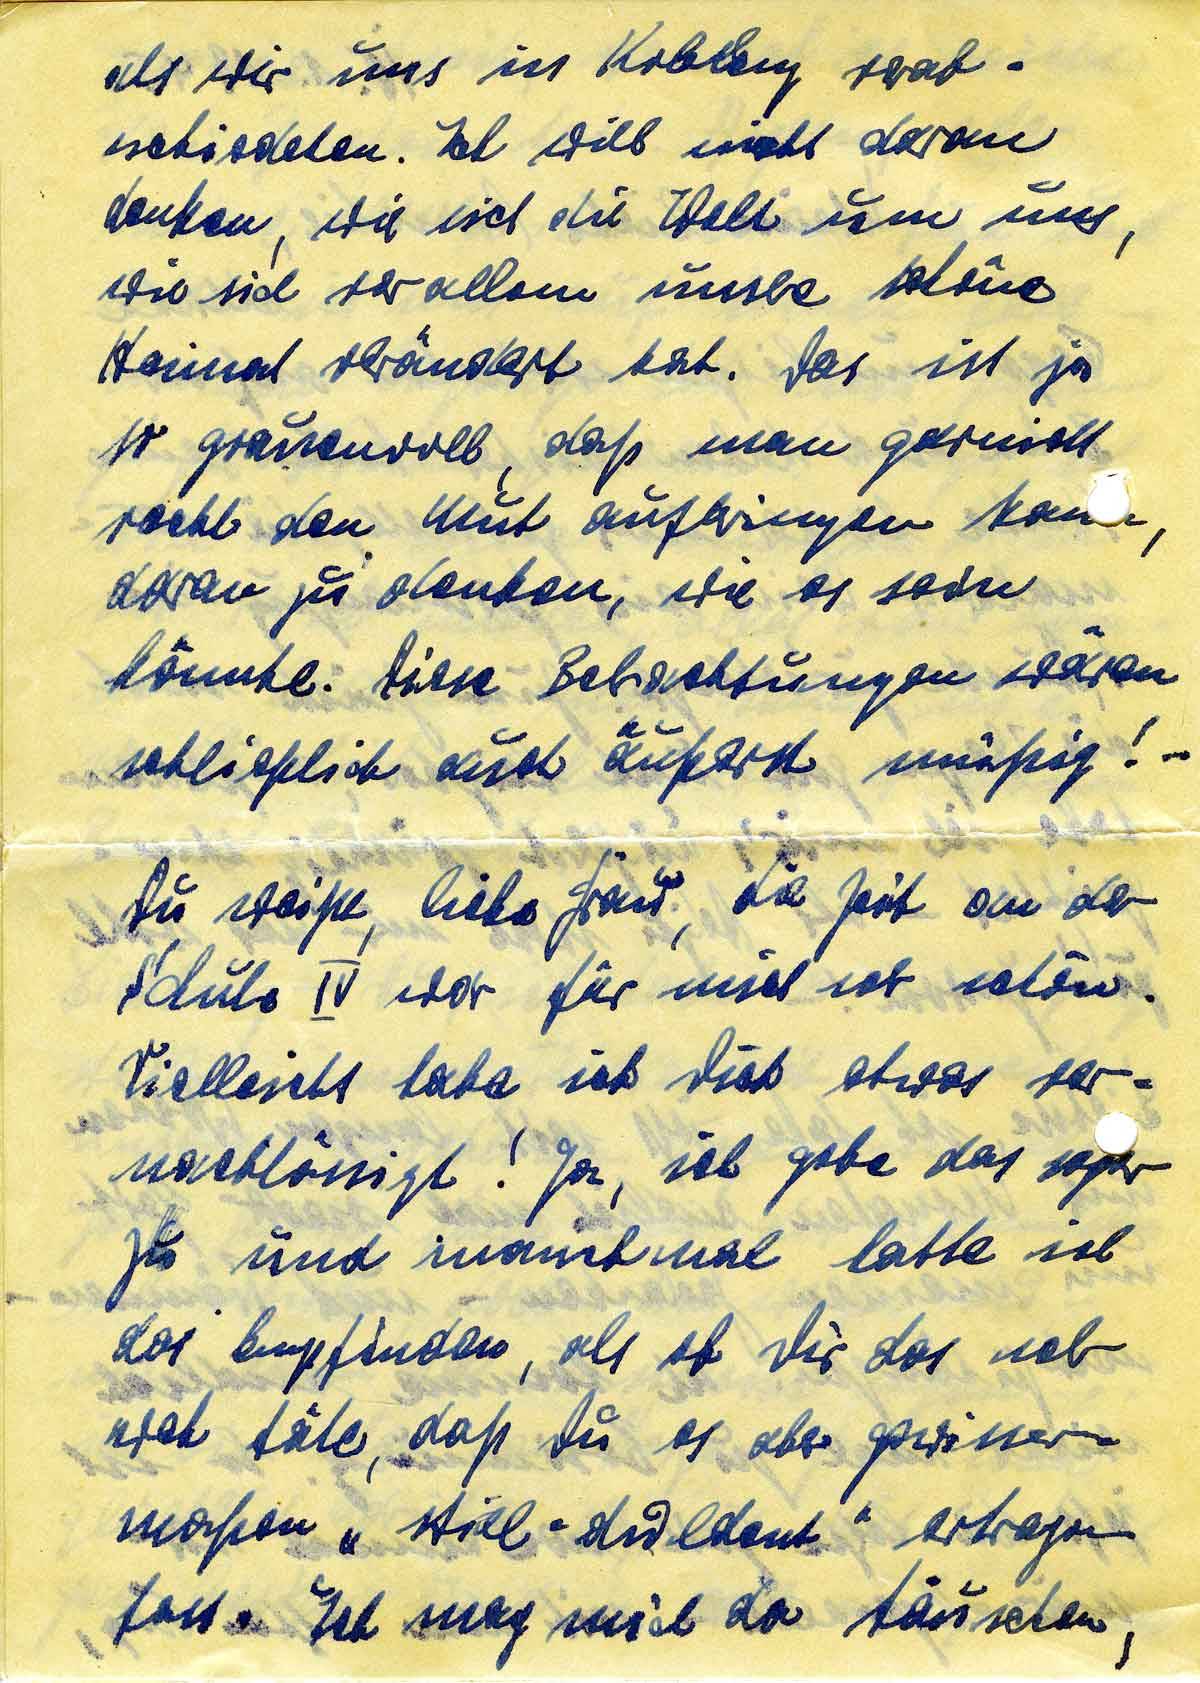 als wir uns in Kolberg verab-
schiedeten. Ich will nicht daran
denken, wie sich die Welt um uns,
wie sich vor allem unsre schöne
Heimat verändert hat. Das ist ja
so grauenvoll, daß man garnicht
recht den Mut aufbringen kann,
daran zu denken, wie es sein
könnte. Diese Betrachtungen wären
schließlich auch äußerst müßig! -
Du weißt, liebe Frau, die Zeit an der
Schule IV war für mich sehr schön.
Vielleicht habe ich Dich etwas ver-
nachlässigt! Ja, ich gebe das sogar
zu und manchmal hatte ich
das Empfinden, als ob Dir das sehr
weh täte, daß Du es aber gewisser-
maßen „ still-duldend " ertragen
hast. Ich mag mich da täuschen,